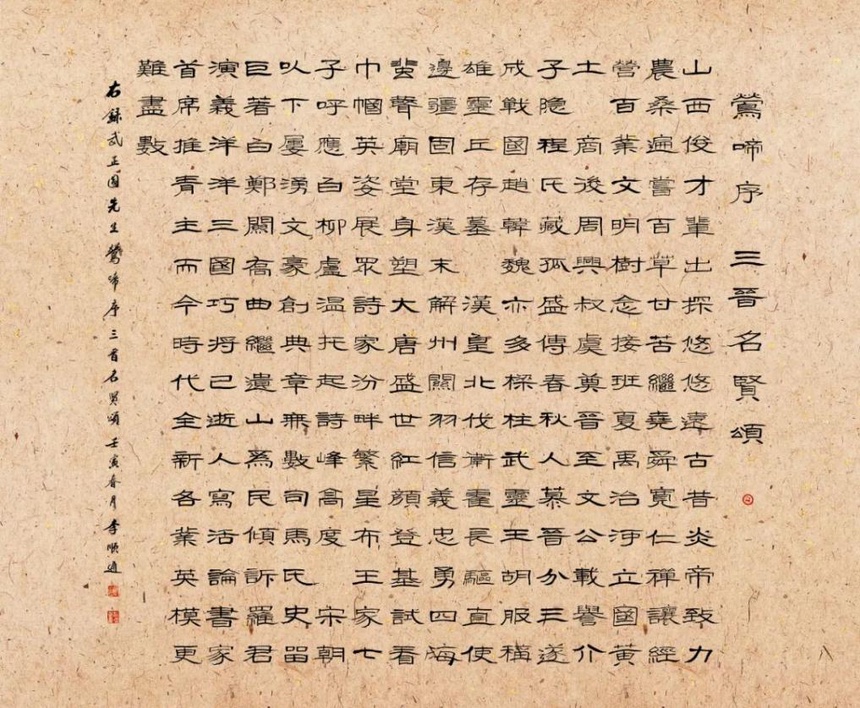 鶯啼序 三晉名賢頌
山西俊才輩出探悠悠遠古昔炎帝致力
農桑遍嘗百草甘苦繼堯舜寬仁禪讓經
營百業文明樹念接班夏禹治河立國黃
土 商後周興叔虞奠晉至文公載譽介
子隱程氏藏孤盛傳春秋人慕晉分三遂
成戰國趙韓魏亦多樑柱武靈王胡服稱
雄靈丘存墓 漢皇北伐衛霍長驅直使
邊疆固東漢末 解州關羽信義忠勇四海
蜚聲廟堂身塑大唐盛世紅顏登基試看
巾幗英姿展眾詩家汾畔繁星布王家七
子呼應白柳盧溫托起詩峰高度 宋朝
以下屢湧文豪創典章無數司馬氏史留
巨著白鄭關高曲繼遺山為民傾訴羅君
演義洋洋三國巧將已逝人寫活論書家
首席推青主而今時代全新各業英模更
難盡數
右錄武正國先生鶯啼序三晉名賢頌壬寅春月李順通